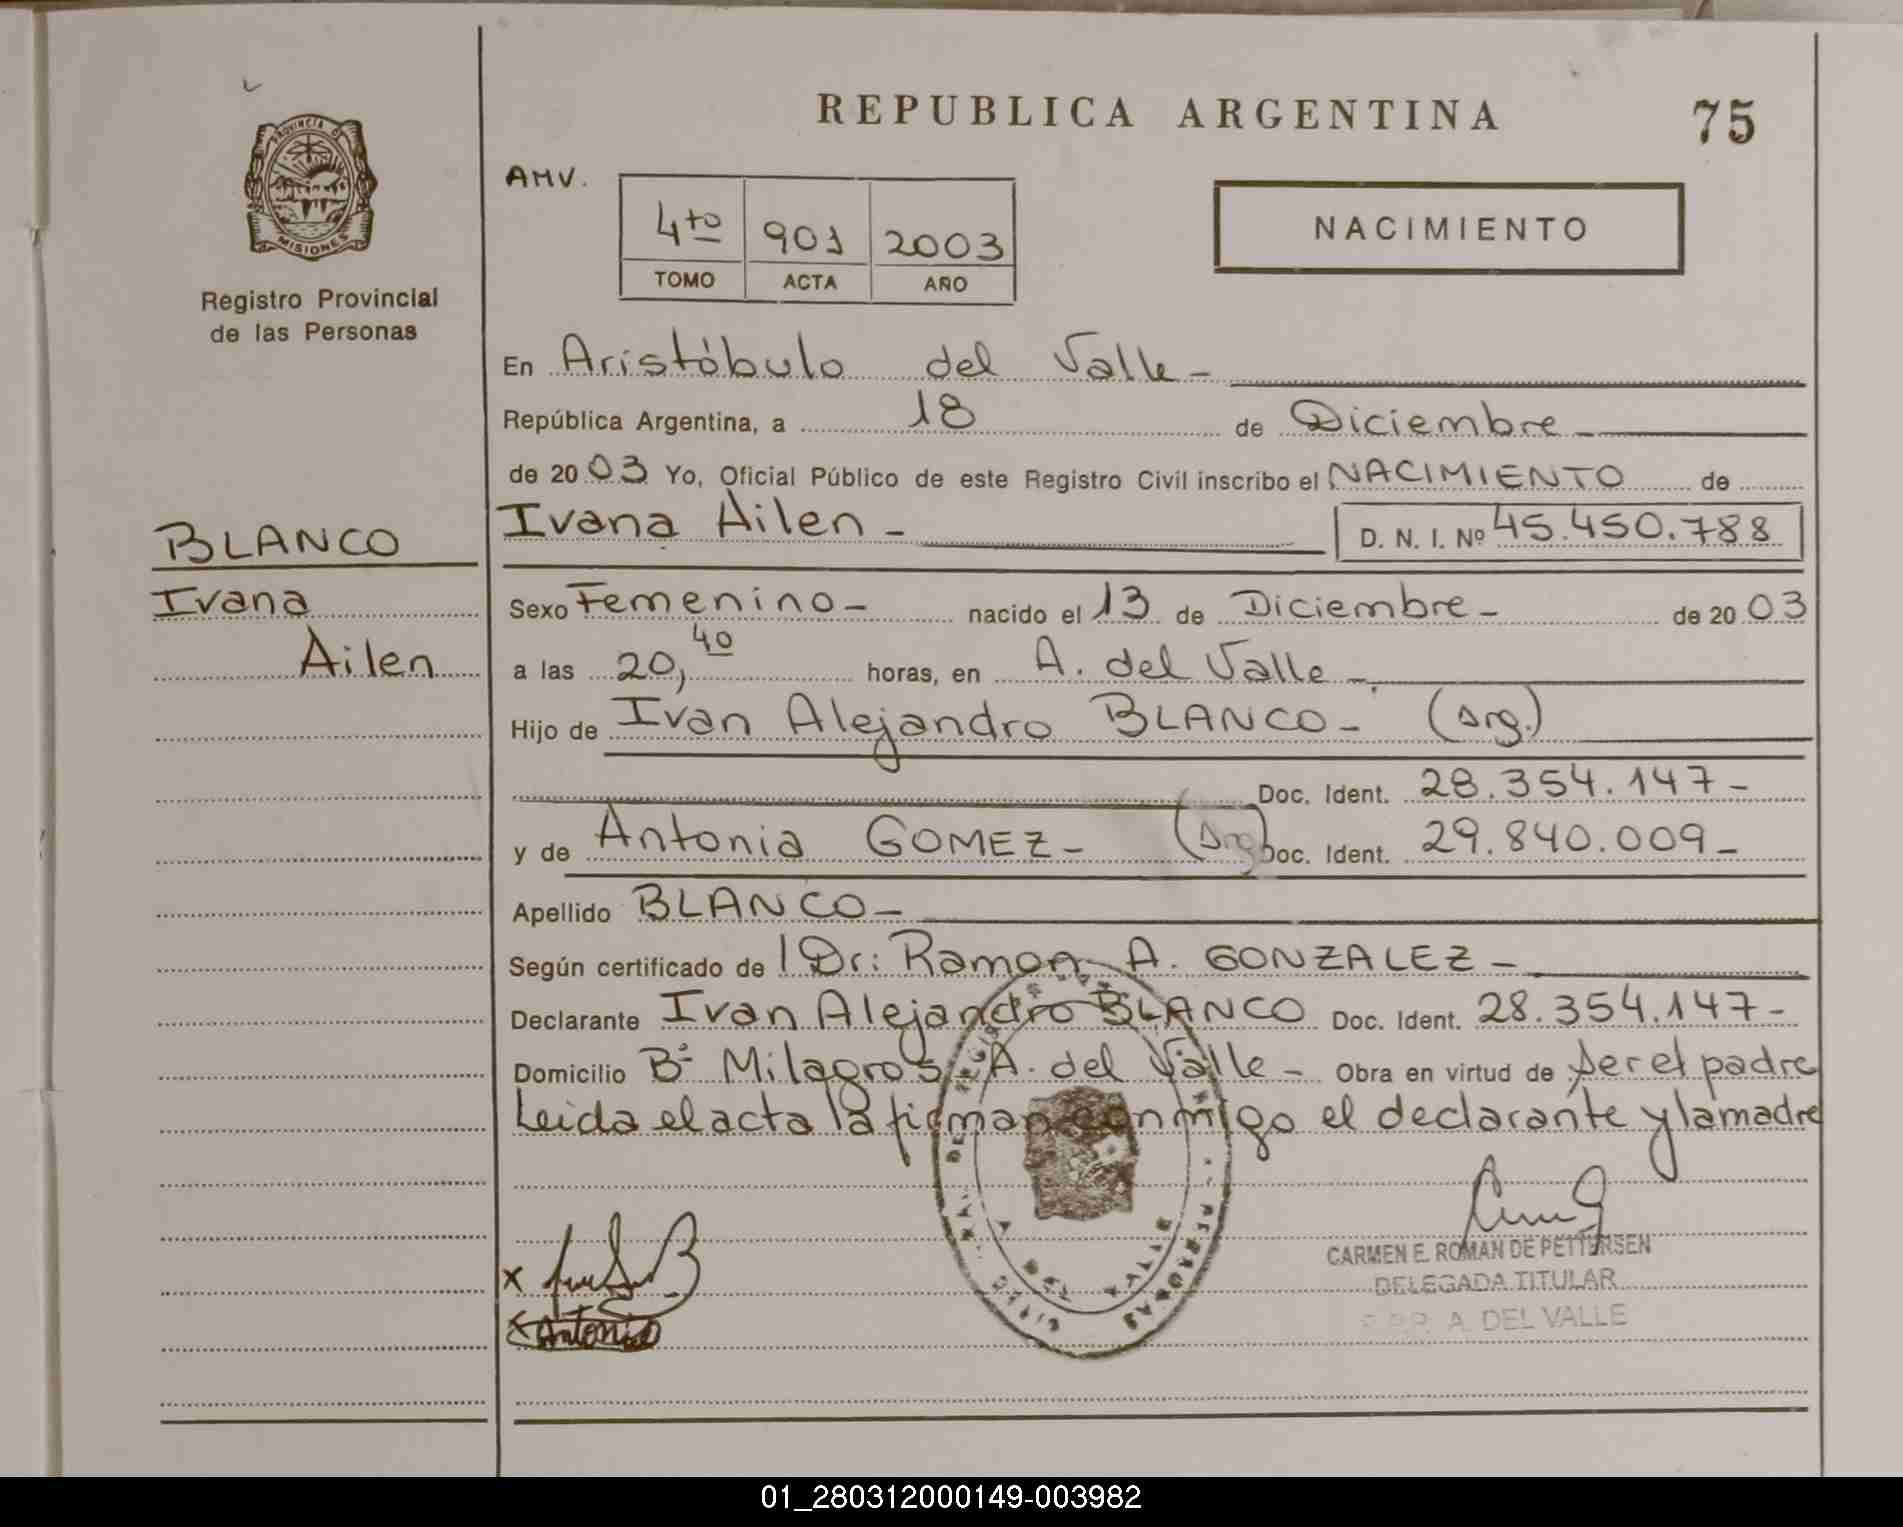 REPUBLICA ARGENTINA
75
PROVINCIA D
MISIONES
Registro Provincial
de las Personas
AMV.
4to 901 2003
TOMO ACTA AÑO
NACIMIENTO
En Aristóbulo del Valle -
República Argentina, a 18 de Diciembre -
de 20 03 Yo, Oficial Público de este Registro Civil inscribo el NACIMIENTO de
BLANCO
Ivana Ailen -
D. N. I. Nº 45.450.788
Ivana
Ailen
Sexo Femenino - nacido el 13 de Diciembre - de 20 03
a las 20,40 horas, en A. del Valle -
Hijo de Ivan Alejandro BLANCO - (Arg.)
Doc. Ident. 28.354.147 -
y de Antonia GOMEZ - (Arg) Doc. Ident. 29.840.009 -
Apellido BLANCO -
Según certificado de Dr: Ramon A. GONZALEZ -
Declarante Ivan Alejandro BLANCO Doc. Ident. 28.354.147 -
Domicilio Bº Milagros A. del Valle - Obra en virtud de ser el padre
Leida el acta la firman conmigo el declarante y la madre
CARMEN E. ROMAN DE PETTERSEN
DELEGADA TITULAR
R.P.P. A. DEL VALLE
x
x Antonia
01_280312000149-003982